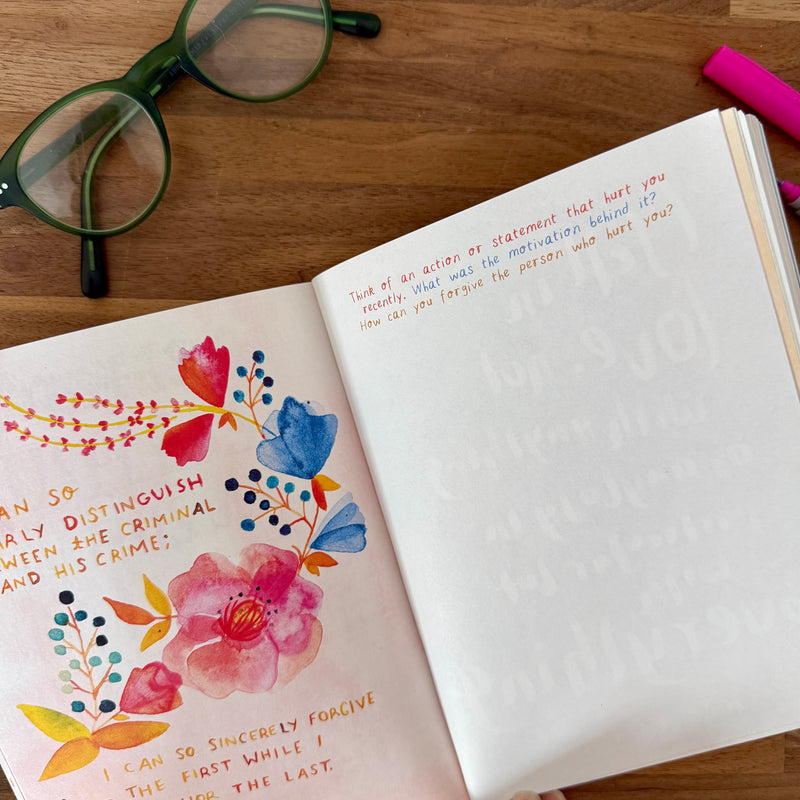 AN SO
ARLY DISTINGUISH
WEEN the CRIMINAL
AND HIS CRIME;
I CAN SO SINCERELY FORGIVE
THE FIRST WHILE I
HOR THE LAST.
Think of an action or statement that hurt you
recently. What was the motivation behind it?
How can you forgive the person who hurt you?